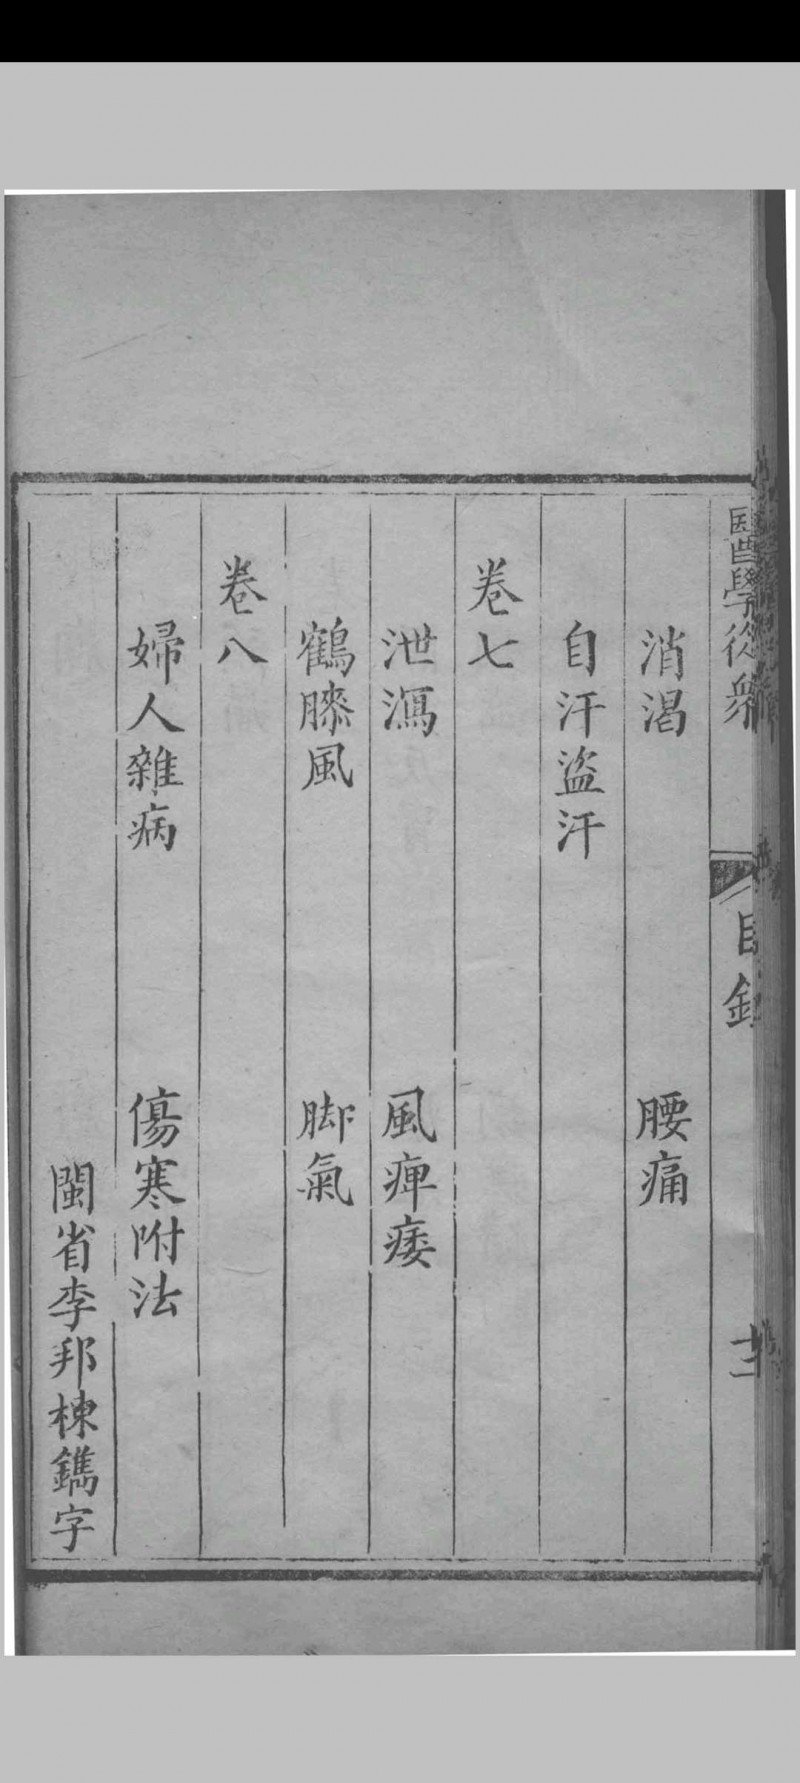 醫學從衆
目錄
消渴　腰痛
自汗盜汗
卷七
泄瀉　風痺痿
鶴膝風　脚氣
卷八
婦人雜病　傷寒附法
閩省李邦棟鐫字